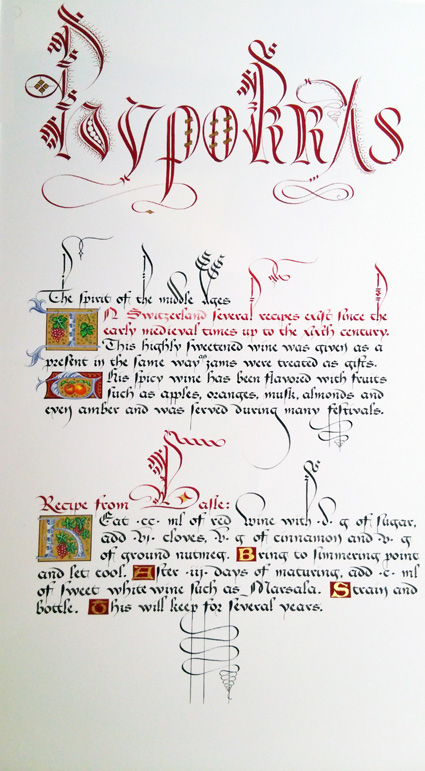 Hypokras
The spirit of the middle Ages
IN Switzerland several recipes exist since the
early medieval times up to the century.
This highly sweetened wine was given as a
present in the same way as jams were treated as gifts.
This spicy wine has been flavored with fruits
such as apples, oranges, musk, almonds and
even amber and was served during many festivals.
Recipe from Basle:
Heat ·cc· ml of red wine with ·d· g of sugar,
add ·vj· cloves, ·v· g of cinnamon and ·v· g
of ground nutmeg. Bring to simmering point
and let cool. After ·iij· days of maturing, add ·c· ml
of sweet white wine such as Marsala. Strain and
bottle. This will keep for several years.